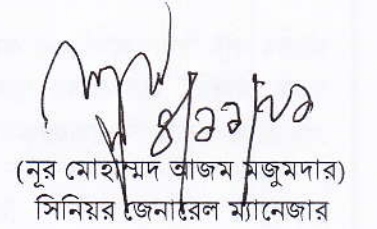 ৪/১১/২১
(নূর মোহাম্মদ আজম মজুমদার)
সিনিয়র জেনারেল ম্যানেজার